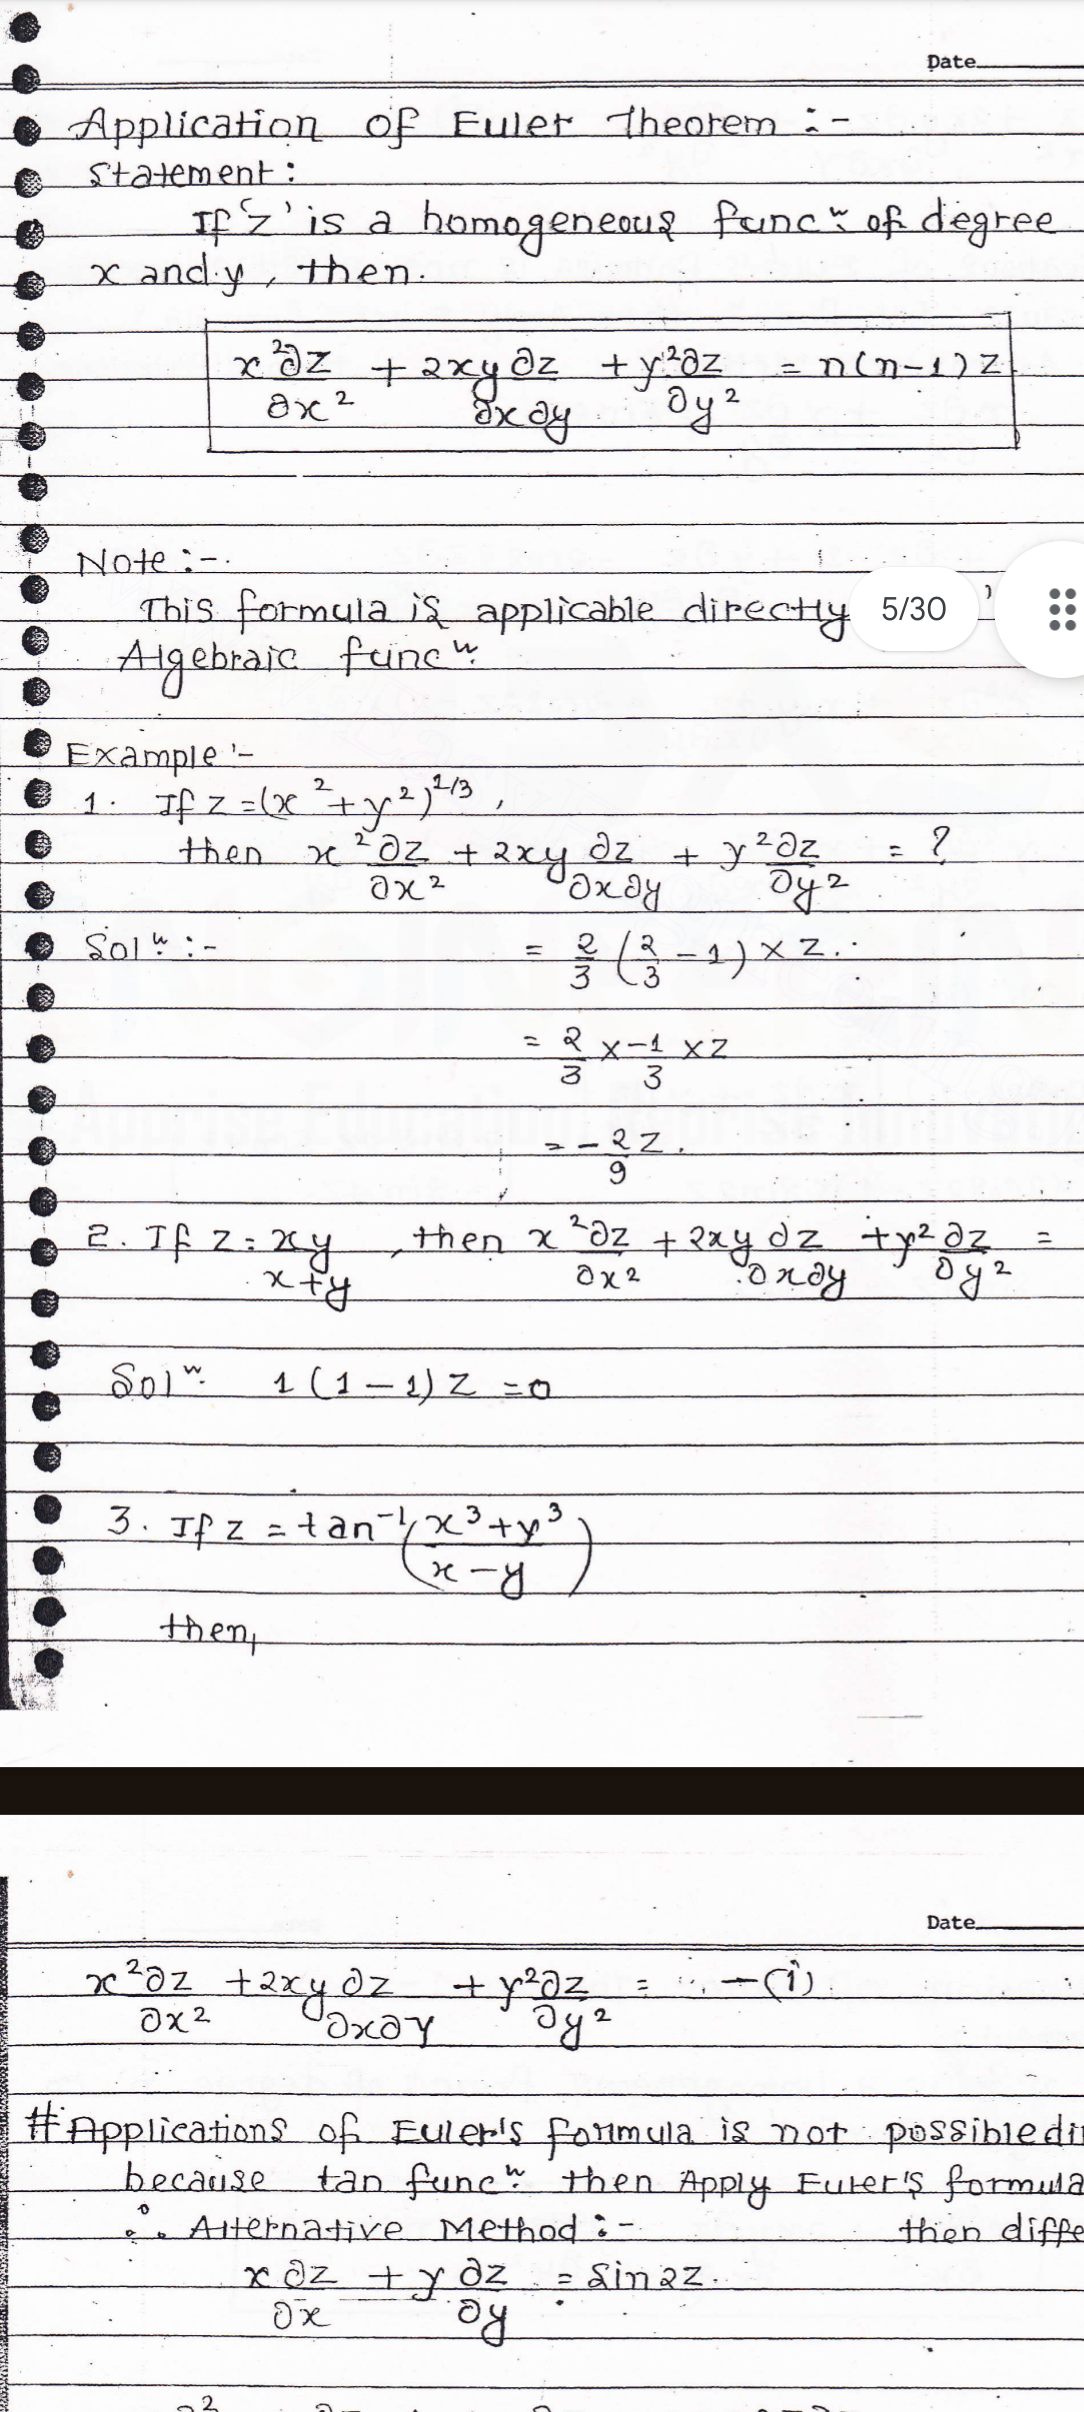 Date
Application of Euler Theorem :-
Statement :
If 'z' is a homogeneous funcⁿ. of degree
x and y, then.
x²∂z/∂x² + 2xy ∂z/∂x∂y + y²∂z/∂y² = n(n-1) z
Note :-.
This formula is applicable directly
5/30
Algebraic funcⁿ.
Example :-
1. If z = (x² + y²)^1/3 ,
then x²∂z/∂x² + 2xy ∂z/∂x∂y + y²∂z/∂y² = ?
Solⁿ. :- = 2/3 (2/3 - 1) × z.
= 2/3 × -1/3 × z
= -2/9 z.
2. If z = xy/x+y , then x²∂z/∂x² + 2xy ∂z/∂x∂y + y² ∂z/∂y² =
Solⁿ. 1 (1 - 1) z = 0
3. If z = tan⁻¹ (x³ + y³/x - y)
then,
Date
x²∂z/∂x² + 2xy ∂z/∂x∂y + y²∂z/∂y² = - (i)
# Applications of Euler's formula is not possible
because tan funcⁿ. then Apply Euler's formula
∴ Alternative Method :- then
x ∂z/∂x + y ∂z/∂y = Sin 2z.